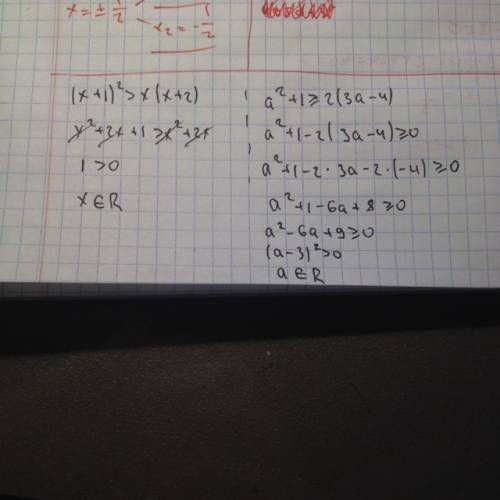 x = ± 1/2
x₂ = -1/2
(x+1)² > x(x+2)
x²+2x+1 > x²+2x
1 > 0
x ∈ R
a²+1 ≥ 2(3a-4)
a²+1-2(3a-4) ≥ 0
a²+1-2·3a-2·(-4) ≥ 0
a²+1-6a+8 ≥ 0
a²-6a+9 ≥ 0
(a-3)² > 0
a ∈ R